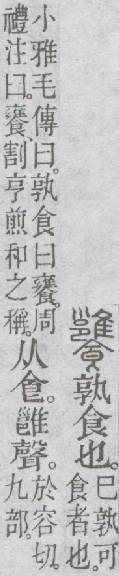 饔孰食也。
巳孰可
食者也。
小雅毛傳曰。孰食曰饔。周
禮注曰。饔、割亨煎和之稱。
从食。雝聲。
於容切。
九部。